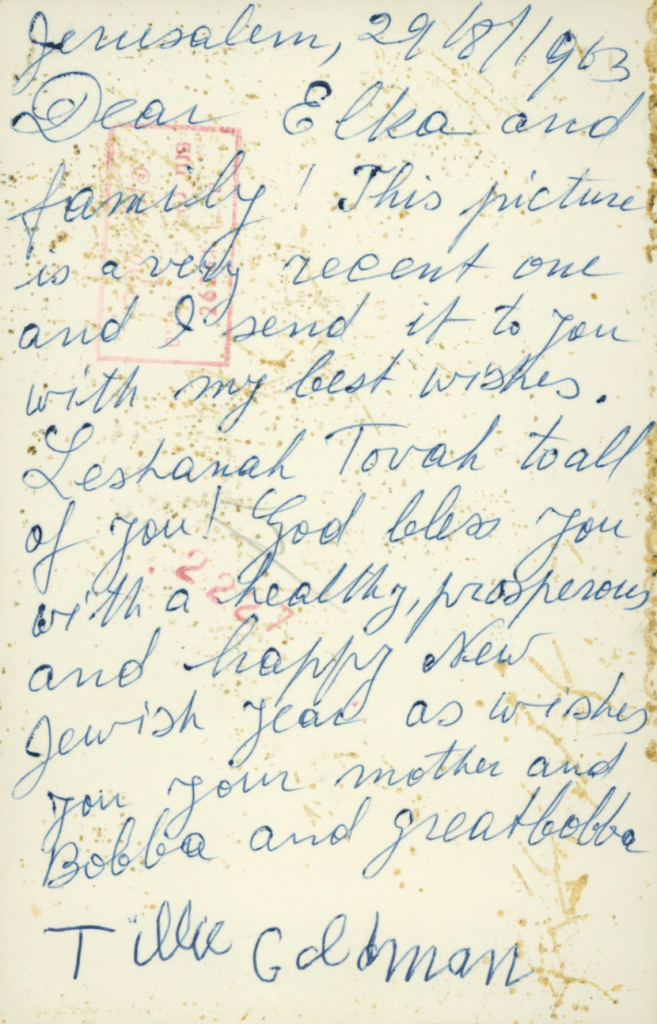 Jerusalem, 29/8/1963
Dear Elka and
family! This picture
is a very recent one
and I send it to you
with my best wishes.
Leshanah Tovah to all
of you! God bless you
with a healthy, prosperous
and happy New
Jewish year as wishes
you your mother and
Bobba and greatbobba
Tillie Goldman
2227